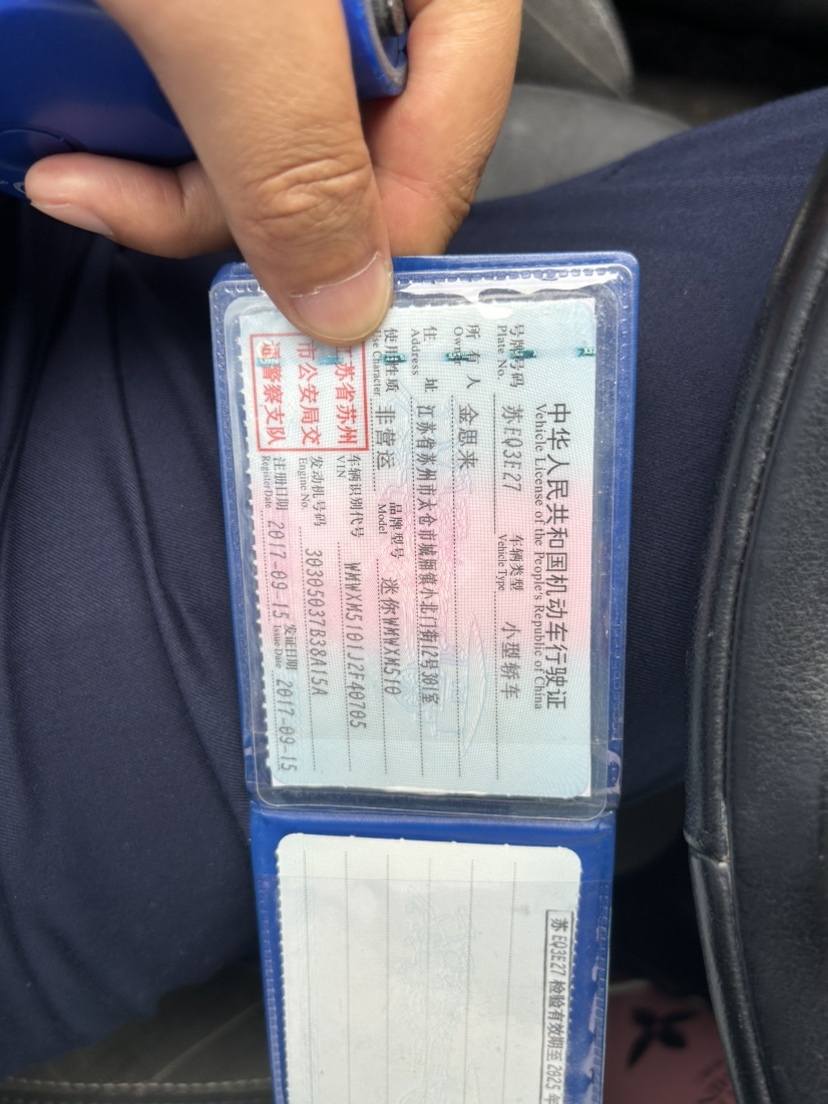 中华人民共和国机动车行驶证
Vehicle License of the People's Republic of China
号牌号码 苏EQ3E27 车辆类型 小型轿车
Plate No. Vehicle Type
所有人 金思来
Owner
住址 江苏省苏州市太仓市城厢镇小北门街12号301室
Address
使用性质 非营运 品牌型号 迷你WMWXM510
Use Character Model
苏省苏州
市公安局交
警察支队
车辆识别代号 WMWXM5101J2F40705
VIN
发动机号码 30305037B38A15A
Engine No.
注册日期 2017-09-15 发证日期 2017-09-15
Register Date Issue Date
苏EQ3E27 检验有效期至 2025年